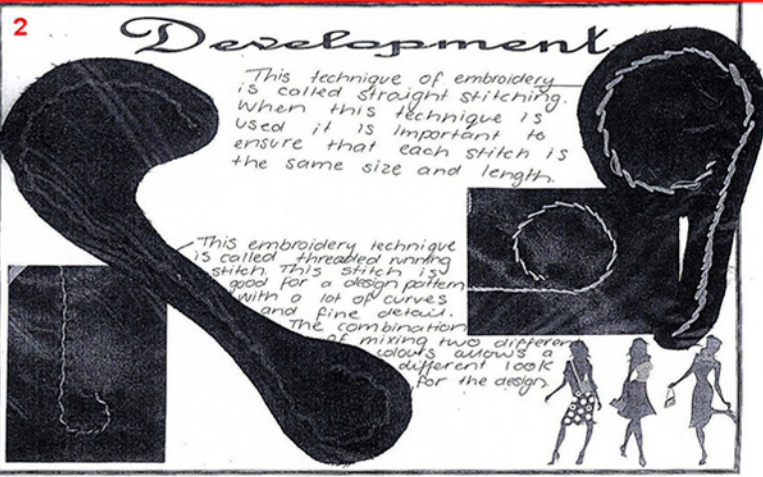 2
Development
This technique of embroidery
is called straight stitching.
When this technique is
used it is important to
ensure that each stitch is
the same size and length.
This embroidery technique
is called threaded running
stitch. This stitch is
good for a design pattern
with a lot of curves
and fine detail.
The combination
of mixing two different
colours allows a
different look
for the design.